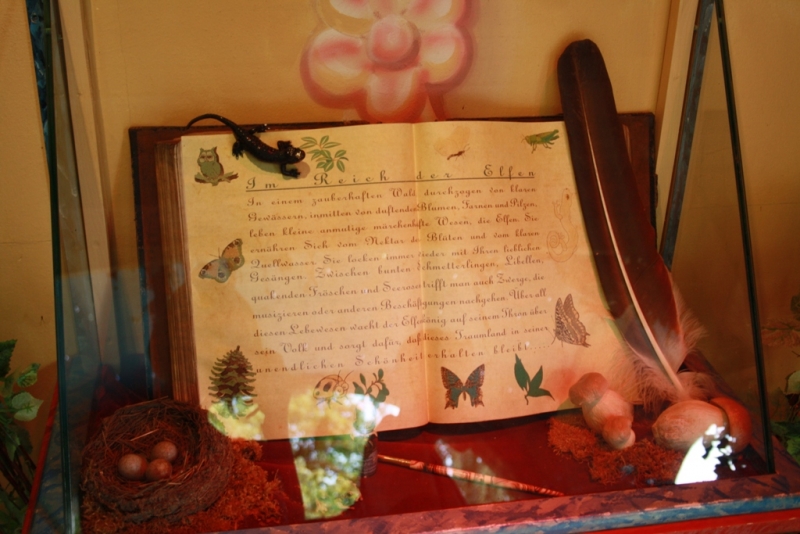 Im Reich der Elfen
In einem zauberhaften Wald durchzogen von blauen
Gewässern, inmitten von duftenden Blumen, Farnen und Pilzen,
leben kleine anmutige märchenhafte Wesen, die Elfen. Sie
ernähren Sich vom Nektar de Blüten und vom blauen
Quellwasser. Sie locken immer wieder mit Ihren lieblichen
Gesängen. Zwischen bunten Schmetterlingen, Libellen,
quakenden Fröschen und Seerosen trifft man auch Zwerge, die
musizieren oder anderen Beschäftigungen nachgehen. Über all
diesen Lebewesen wacht der Elfkönig auf seinem Thron über
sein Volk und sorgt dafür, daß dieses Traumland in seiner
unendlichen Schönheit erhalten bleibt....